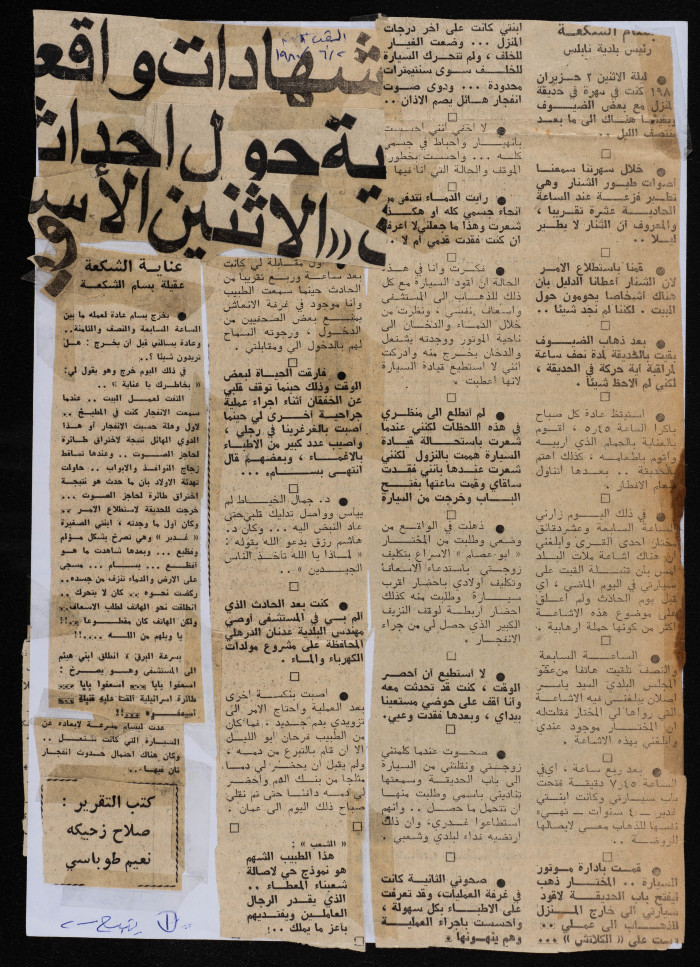 الشعب
١٩٨٠/٦/٢
شهادات واقع
ية حول احداث
«الاثنين الأسو
بسام الشكعة
رئيس بلدية نابلس
● ليلة الاثنين ٢ حزيران
١٩٨٠ كنت في سهرة في حديقة
المنزل مع بعض الضيوف
وبقينا هناك الى ما بعد
منتصف الليل ..
● خلال سهرتنا سمعنا
اصوات طيور الشنار وهي
تطير فزعة عند الساعة
الحادية عشرة تقريبا ،
والمعروف ان الشنار لا يطير
ليلا ..
● قمنا باستطلاع الامر
لان الشنار اعطانا الدليل بأن
هناك اشخاصا يحومون حول
البيت . لكننا لم نجد شيئا ..
● بعد ذهاب الضيوف
بقيت بالحديقة لمدة نصف ساعة
لمراقبة أية حركة في الحديقة ،
لكني لم الاحظ شيئا .
● استيقظ عادة كل صباح
باكرا الساعة ٥ر٤٥ ، اقوم
بالعناية بالحمام الذي اربيه
واقوم باطعامه ، كذلك اهتم
بالحديقة .. بعدها أتناول
طعام الافطار .
● في ذلك اليوم زارني
الساعة السابعة وعشر دقائق
مختار احدى القرى وابلغني
ان هناك اشاعة ملات البلد
امس بأن قنبلة القيت على
سيارتي في اليوم الماضي ، اي
قبل يوم الحادث ولم أعلق
على موضوع هذه الاشاعة
اكثر من كونها حملة ارهابية .
● الساعة السابعة
والنصف تلقيت هاتفا من عضو
المجلس البلدي السيد ياسر
اصلان يبلغني فيه الاشاعة
التي رواها لي المختار فقلت له
ان المختار موجود عندي
وابلغني بهذه الاشاعة .
● بعد ربع ساعة ، اي في
الساعة ٧ر٤٥ دقيقة فتحت
باب سيارتي وكانت ابنتي
غدير - ٤ سنوات - تهيء
نفسها للذهاب معي لايصالها
للروضة ..
● قمت بادارة موتور
السيارة .. المختار ذهب
ليفتح باب الحديقة لاقود
سيارتي الى خارج المنزل
للذهاب الى عملي ..
دست على « الكلاتش » ...
ابنتي كانت على آخر درجات
المنزل ... وضعت الغيار
للخلف ، ولم تتحرك السيارة
للخلف سوى سنتيمترات
محدودة ... ودوى صوت
انفجار هائل يصم الاذان ..
● لا اخفي انني احسست
بانهيار واحباط في جسمي
كله ... واحسست بخطورة
الموقف والحالة التي انا فيها
● رأيت الدماء تتدفق من
انحاء جسمي كله او هكذا
شعرت وهذا ما جعلني لا اعرف
ان كنت فقدت قدمي أم لا ..
● فكرت وأنا في هذه
الحالة ان اقود السيارة مع كل
ذلك للذهاب الى المستشفى
واسعاف نفسي ، ونظرت من
خلال الدماء والدخان الى
ناحية الموتور ووجدته يشتعل
والدخان يخرج منه وأدركت
أنني لا استطيع قيادة السيارة
لانها اعطبت .
● لم اتطلع الى منظري
في هذه اللحظات لكنني عندما
شعرت باستحالة قيادة
السيارة هممت بالنزول لكنني
شعرت عندها بأنني فقدت
ساقاي وقمت ساعتها بفتح
الباب وخرجت من السيارة
● ذهلت في الواقع من
وضعي وطلبت من المختار
« ابو عصام » الاسراع بتكليف
زوجتي باستدعاء الاسعاف
وتكليف أولادي باحضار اقرب
سيارة وطلبت منه كذلك
احضار اربطة لوقف النزيف
الكبير الذي حصل لي من جراء
الانفجار .
● لا استطيع أن احصر
الوقت ، كنت قد تحدثت معه
وأنا أقف على حوضي مستعينا
بيداي ، وبعدها فقدت وعيي.
● صحوت عندما كلمتني
زوجتي ونقلتني من السيارة
الى باب الحديقة وسمعتها
تناديني باسمي وطلبت منها
ان تتحمل ما حصل .. وانهم
استطاعوا غدري، وان ذلك
ارتضيه فداء لبلدي وشعبي .
● صحوتي الثانية كانت
في غرفة العمليات، وقد تعرفت
على الاطباء بكل سهولة ،
واحسست باجراء العملية
وهم ينهونها .
مقابلة لي كانت
بعد ساعة وربع تقريبا من
الحادث حينما سمعت الطبيب
وانا موجود في غرفة الانعاش
يمنع بعض الصحفيين من
الدخول ، ورجوته السماح
لهم بالدخول الي ومقابلتي .
● فارقت الحياة لبعض
الوقت وذلك حينما توقف قلبي
عن الخفقان أثناء اجراء عملية
جراحية اخرى لي حينما
أصبت بالغرغرينا في رجلي ،
واصيب عدد كبير من الاطباء
بالاغماء ، وبعضهم قال
انتهى بسام...
● د. جمال الخياط لم
ييأس وواصل تدليك قلبي حتى
عاد النبض اليه ... وكان د.
هاشم رزق يدعو الله بقوله :
« لماذا يا الله تأخذ الناس
الجيدين » ..
● كنت بعد الحادث الذي
ألم بي في المستشفى أوصي
مهندس البلدية عدنان الدرهلي
المحافظة على مشروع مولدات
الكهرباء والماء .
● أصبت بنكسة أخرى
بعد العملية واحتاج الامر الى
تزويدي بدم جديد . فما كان
من الطبيب فرحان ابو الليل
الا ان قام بالتبرع من دمه ،
ولم يقبل ان يحضر لي دما
مثلجا من بنك الدم واحضر
لي دمه دافئا حتى تم نقلي
صباح ذلك اليوم الى عمان .
« الشعب » :
هذا الطبيب الشهم
هو نموذج حي لاصالة
شعبنا المعطاء ..
الذي يقدر الرجال
العاملين ويفتديهم
بأعز ما يملك ..!
عناية الشكعة
عقيلة بسام الشكعة
● يخرج بسام عادة لعمله ما بين
الساعة السابعة والنصف والثامنة..
وعادة يسألني قبل ان يخرج : هل
تريدون شيئا ؟..
في ذلك اليوم خرج وهو يقول لي:
« بخاطرك يا عناية » ..
التفت لعمل البيت .. عندما
سمعت الانفجار كنت في المطبخ ..
لاول وهلة حسبت الانفجار او هذا
الدوي الهائل نتيجة لاختراق طائرة
لحاجز الصوت .. وعندها تساقط
زجاج النوافذ والابواب .. حاولت
تهدئة الاولاد بان ما حدث هو نتيجة
اختراق طائرة لحاجز الصوت ...
خرجت للحديقة لاستطلاع الامر ..
وكان أول ما وجدته ، ابنتي الصغيرة
« غدير » وهي تصرخ بشكل مؤلم
وفظيع ... وبعدها شاهدت ما هو
أفظع ... بسام ... مسجى
على الارض والدماء تنزف من جسده..
ركضت نحوه .. كان لا يتحرك ..
انطلقت نحو الهاتف لطلب الاسعاف..
ولكن الهاتف كان مقطوعا ..!!
يا ويلهم من الله ....!!
بسرعة البرق ، انطلق ابني هيثم
الى المستشفى وهو يصرخ :
اسعفوا بابا ... اسعفوا بابا ...
طائرة اسرائيلية القت عليه قنبلة ...
اسعفوه ...!!
عدت لبسام مسرعة لابعاده عن
السيارة التي كانت تشتعل ..
وكان هناك احتمال حدوث انفجار
ثان فيها..
كتب التقرير :
صلاح زحيكه
نعيم طوباسي
يتبع